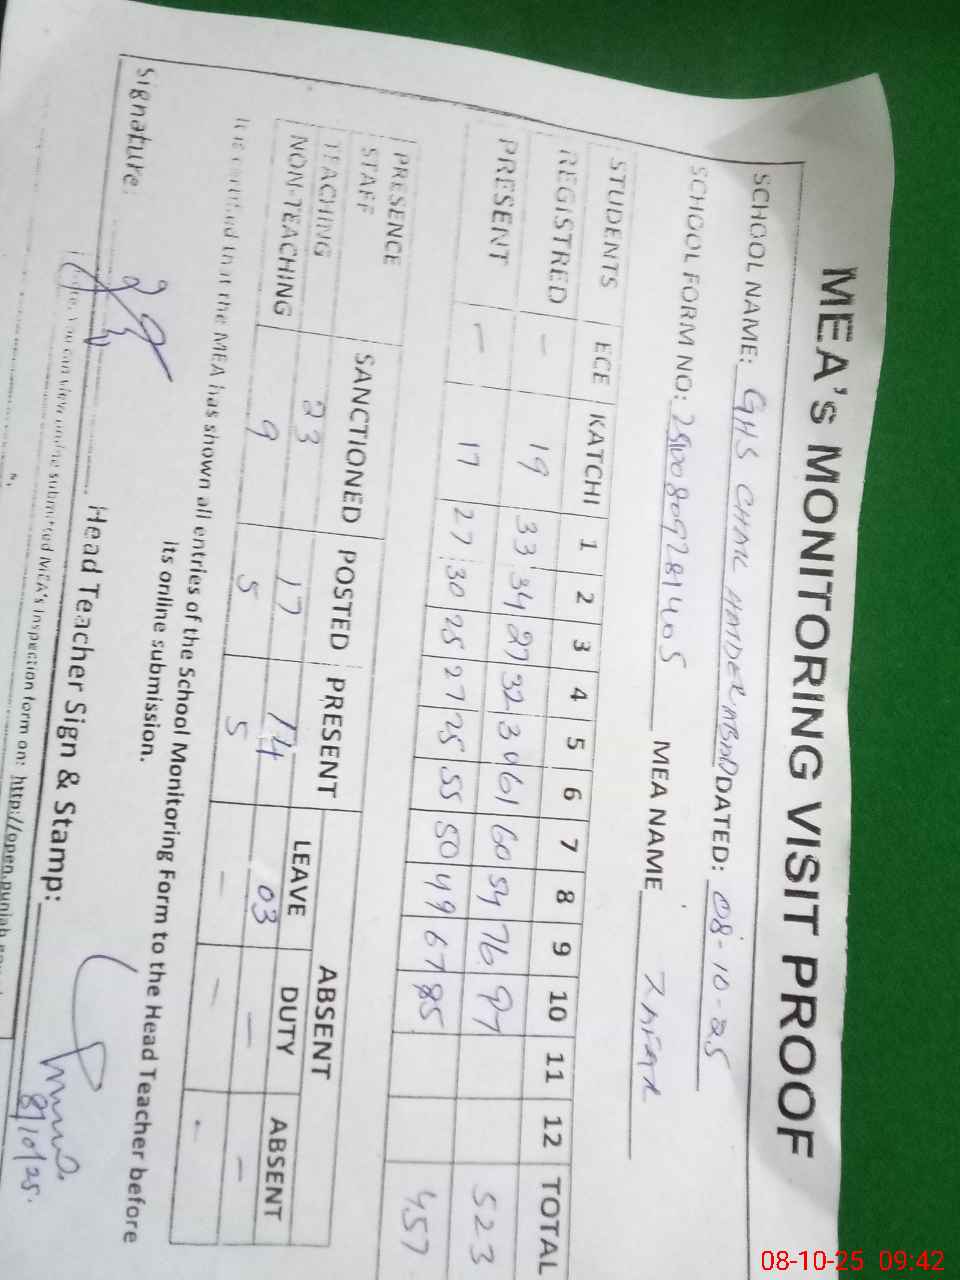 MEA's MONITORING VISIT PROOF
SCHOOL NAME: GHS CHAK HAIDER ABAD DATED: 08-10-25
SCHOOL FORM NO: MEA NAME
STUDENTS ECE KATCHI 1 2 3 4 5 6 7 8 9 10 11 12 TOTAL
REGISTRED - 19 33 34 27 32 30 61 60 54 76 97 523
PRESENT - 17 27 30 25 27 25 55 50 49 67 85 457
PRESENCE SANCTIONED POSTED PRESENT ABSENT
STAFF LEAVE DUTY ABSENT
TEACHING 23 17 14 03 - -
NON-TEACHING 9 5 5 - - -
It is certified that the MEA has shown all entries of the School Monitoring Form to the Head Teacher before
its online submission.
Signature: Head Teacher Sign & Stamp:
8/10/25.
You can view online submitted MEA's Inspection form on: http://open.punjab.gov
08-10-25 09:42